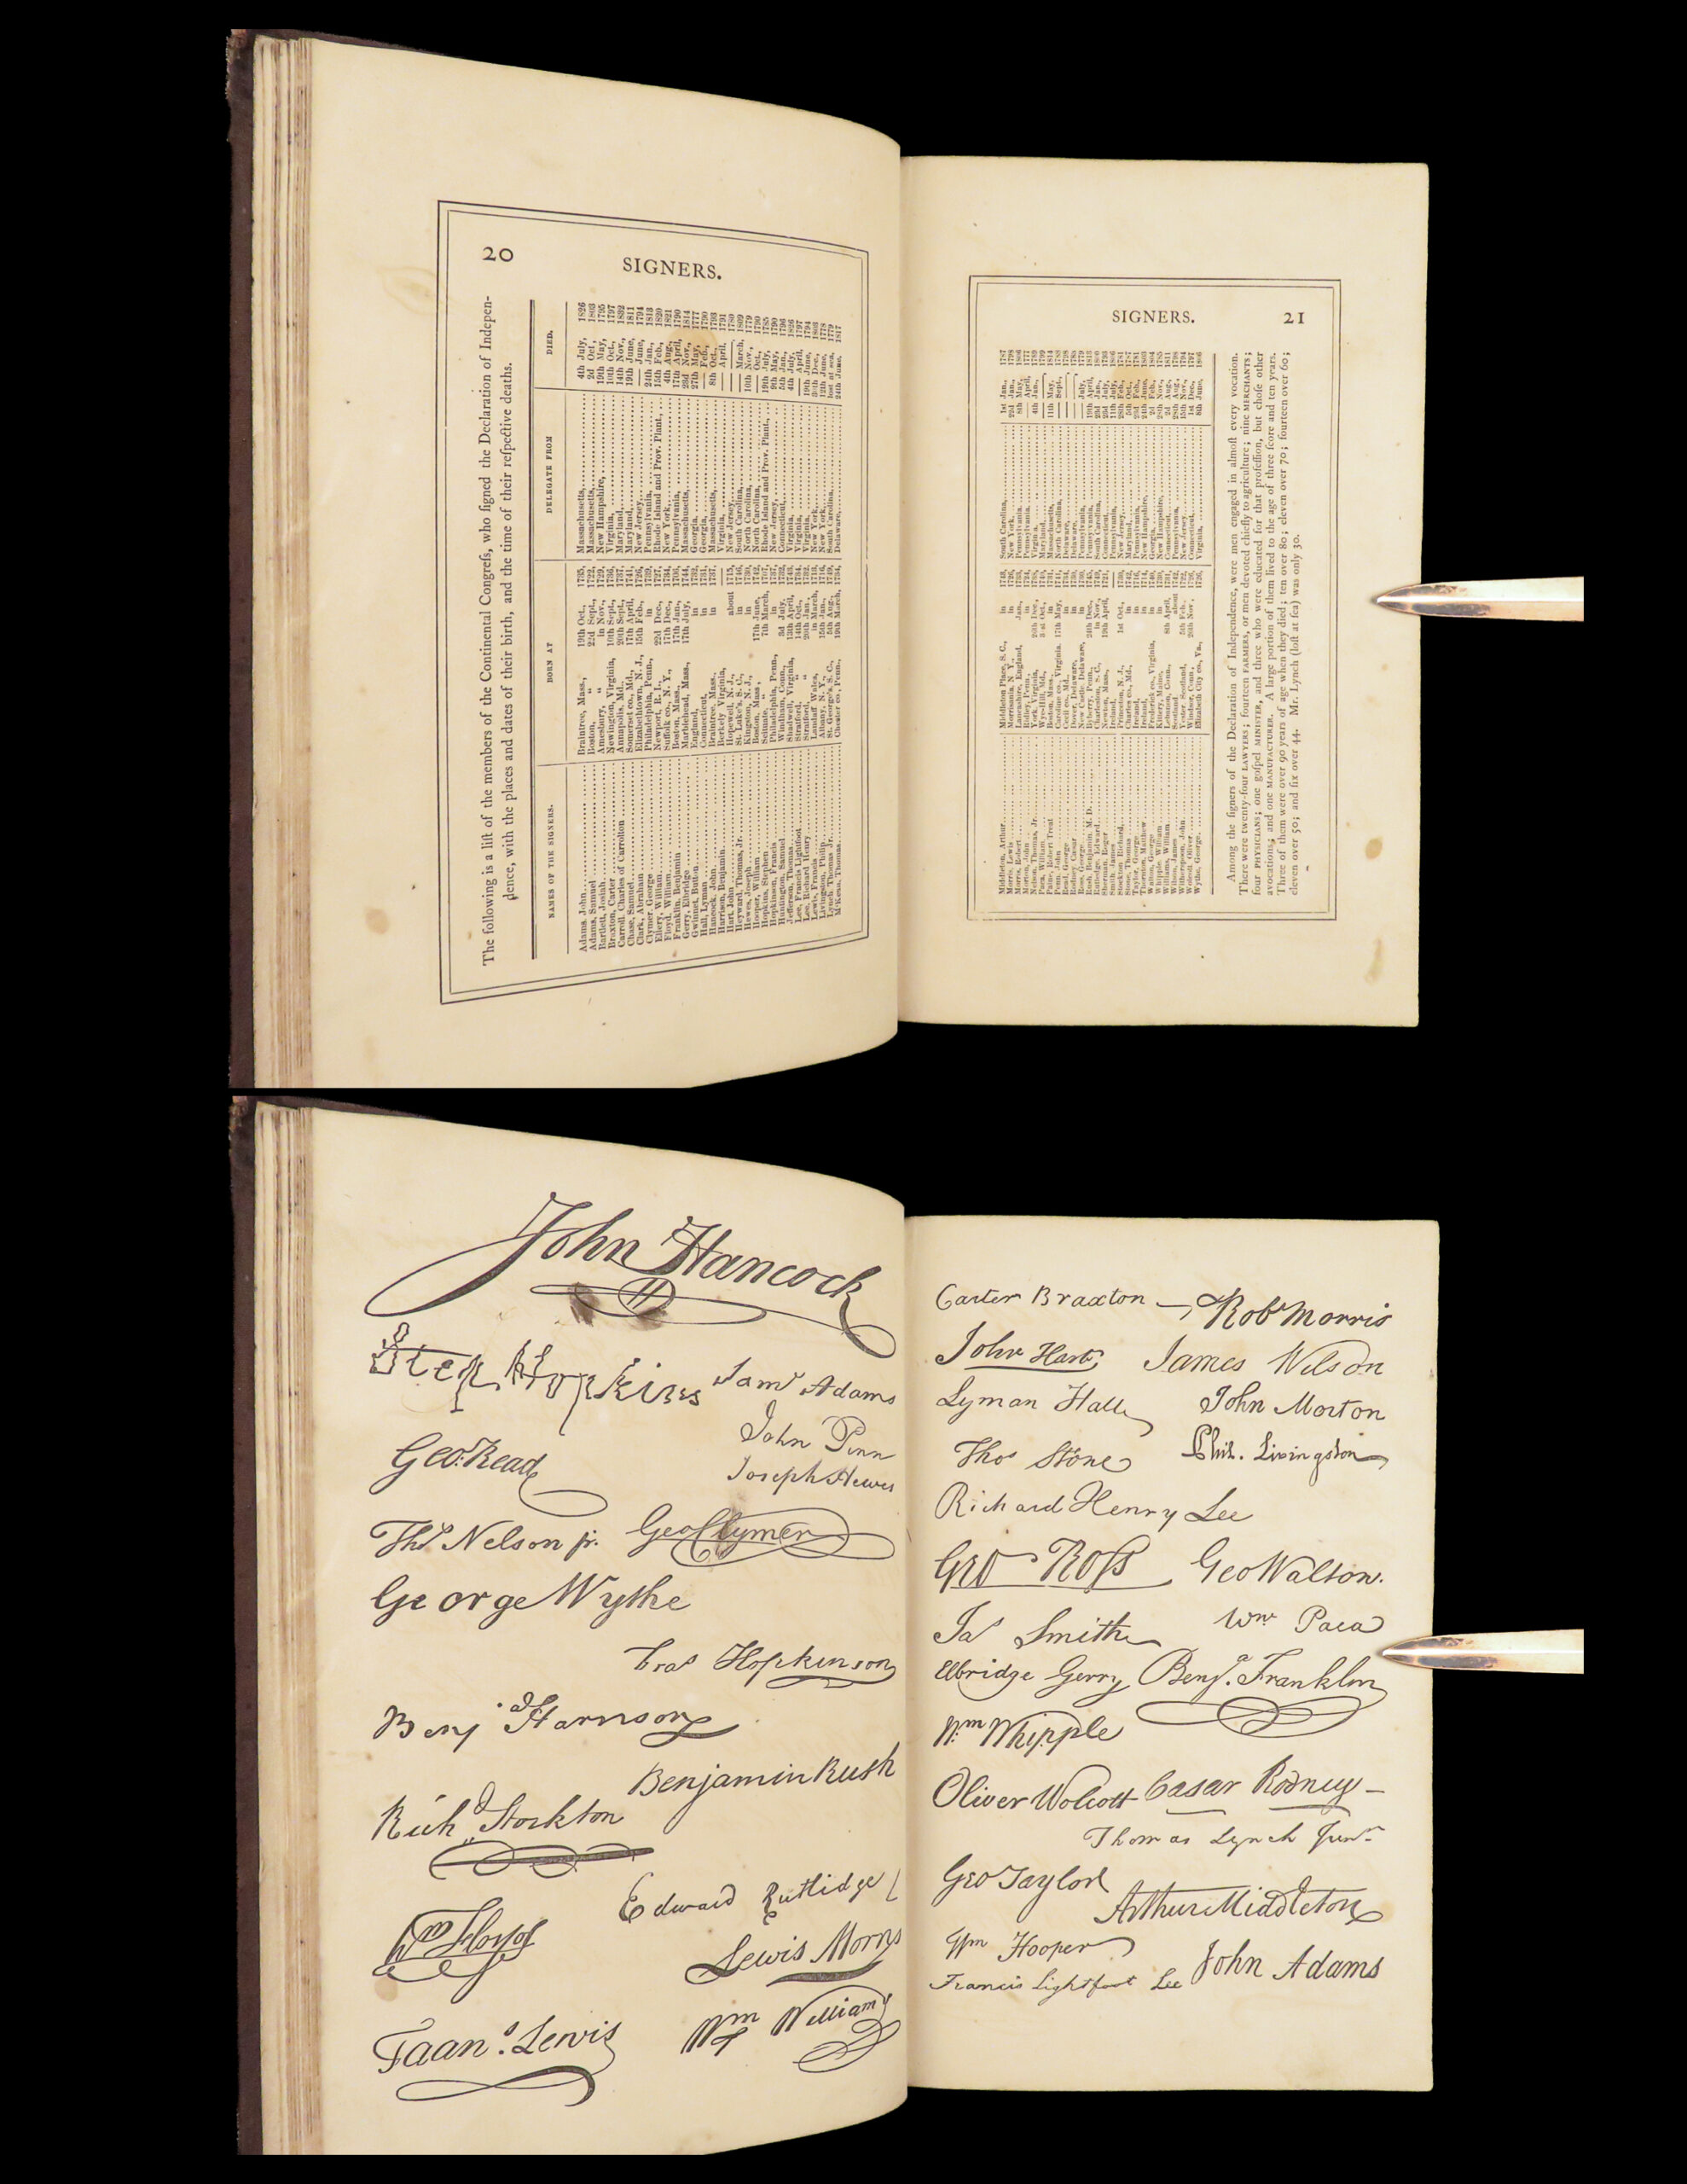 20
SIGNERS.
The following is a liſt of the members of the Continental Congreſs, who ſigned the Declaration of Indepen-
dence, with the places and dates of their birth, and the time of their reſpective deaths.
NAMES OF THE SIGNERS. BORN AT DELEGATE FROM DIED.
Adams, John Braintree, Mass., 19th Oct., 1735, Massachusetts, 4th July, 1826
Adams, Samuel Boston, " 22d Sept., 1722, Massachusetts, 2d Oct., 1803
Bartlett, Josiah Amesbury, " in Nov., 1729, New Hampshire, 19th May, 1795
Braxton, Carter Newington, Virginia, 10th Sept., 1736, Virginia, 10th Oct., 1797
Carroll, Charles of Carrolton Annapolis, Md., 20th Sept., 1737, Maryland, 14th Nov., 1832
Chase, Samuel Somerset co., Md., 17th April, 1741, Maryland, 19th June, 1811
Clark, Abraham Elizabethtown, N. J., 15th Feb., 1726, New Jersey, — June, 1794
Clymer, George Philadelphia, Penn., in 1739, Pennsylvania, 24th Jan., 1813
Ellery, William Newport, R. I., 22d Dec., 1727, Rhode Island and Prov. Plant., 15th Feb., 1820
Floyd, William Suffolk co., N. Y., 17th Dec., 1734, New York, 4th Aug., 1821
Franklin, Benjamin Boston, Mass., 17th Jan., 1706, Pennsylvania, 17th April, 1790
Gerry, Elbridge Marblehead, Mass., 17th July, 1744, Massachusetts, 23d Nov., 1814
Gwinnet, Button England, in 1732, Georgia, 27th May, 1777
Hall, Lyman Connecticut, in 1731, Georgia, — Feb., 1790
Hancock, John Braintree, Mass., in 1737, Massachusetts, 8th Oct., 1793
Harrison, Benjamin Berkely Virginia, — Virginia, — April, 1791
Hart, John Hopewell, N. J., about 1715, New Jersey, — 1780
Heyward, Thomas, Jr. St. Luke's, S. C., in 1746, South Carolina, — March, 1809
Hewes, Joseph Kingston, N. J., in 1730, North Carolina, 10th Nov., 1779
Hooper, William Boston, Mass., 17th June, 1742, North Carolina, — Oct., 1790
Hopkins, Stephen Scituate, " 7th March, 1707, Rhode Island and Prov. Plant., 19th July, 1785
Hopkinson, Francis Philadelphia, Penn., in 1737, New Jersey, 9th May, 1790
Huntington, Samuel Windham, Conn., 3d July, 1732, Connecticut, 5th Jan., 1796
Jefferson, Thomas Shadwell, Virginia, 13th April, 1743, Virginia, 4th July, 1826
Lee, Francis Lightfoot Stratford, " 14th Oct., 1734, Virginia, — April, 1797
Lee, Richard Henry Stratford, " 20th Jan., 1732, Virginia, 19th June, 1794
Lewis, Francis Landaff Wales, in March, 1713, New York, 30th Dec., 1803
Livingston, Philip Albany, N. Y., 15th Jan., 1716, New York, 12th June, 1778
Lynch, Thomas Jr. St. George's, S. C., 5th Aug., 1749, South Carolina, lost at sea, 1779
M'Kean, Thomas Chester co., Penn., 19th March, 1734, Delaware, 24th June, 1817
SIGNERS.
21
Middleton, Arthur Middleton Place, S. C., in 1743, South Carolina, 1st Jan., 1787
Morris, Lewis Morrisania, N. Y., in 1726, New York, 22d Jan., 1798
Morris, Robert Lancashire, England, Jan., 1733, Pennsylvania, 8th May, 1806
Morton, John Ridley, Penn., in 1724, Pennsylvania, — April, 1777
Nelson, Thomas, Jr. York, Virginia, 26th Dec., 1738, Virginia, 4th Jan., 1789
Paca, William Wye-Hill, Md., 31st Oct., 1740, Maryland, 1799
Paine, Robert Treat Boston, Mass., in 1731, Massachusetts, 11th May, 1814
Penn, John Caroline co., Virginia, 17th May, 1741, North Carolina, — Sept., 1788
Read, George Cecil co., Md., in 1734, Delaware, 1798
Rodney, Cæsar Dover, Delaware, in 1730, Delaware, 1783
Ross, George New Castle, Delaware, in 1730, Pennsylvania, — July, 1779
Rush, Benjamin, M. D. Byberry, Penn., 24th Dec., 1745, Pennsylvania, 19th April, 1813
Rutledge, Edward Charleston, S. C., in Nov., 1749, South Carolina, 23d Jan., 1800
Sherman, Roger Newton, Mass., 19th April, 1721, Connecticut, 23d July, 1793
Smith, James Ireland, — Pennsylvania, 11th July, 1806
Stockton, Richard Princeton, N. J., 1st Oct., 1730, New Jersey, 28th Feb., 1781
Stone, Thomas Charles co., Md., in 1742, Maryland, 5th Oct., 1787
Taylor, George Ireland, in 1716, Pennsylvania, 23d Feb., 1781
Thornton, Matthew Ireland, in 1714, New Hampshire, 24th June, 1803
Walton, George Frederick co., Virginia, in 1740, Georgia, 2d Feb., 1804
Whipple, William Kittery, Maine, in 1730, New Hampshire, 28th Nov., 1785
Williams, William Lebanon, Conn., 8th April, 1731, Connecticut, 2d Aug., 1811
Wilson, James Scotland, about 1742, Pennsylvania, 28th Aug., 1798
Witherspoon, John Yester, Scotland, 5th Feb., 1722, New Jersey, 15th Nov., 1794
Wolcott, Oliver Windsor, Conn., 26th Nov., 1726, Connecticut, 1st Dec., 1797
Wythe, George Elizabeth City co., Va., 1726, Virginia, 8th June, 1806
Among the ſigners of the Declaration of Independence, were men engaged in almoſt every vocation.
There were twenty-four LAWYERS; fourteen FARMERS, or men devoted chiefly to agriculture; nine MERCHANTS;
four PHYSICIANS; one goſpel MINISTER, and three who were educated for that profeſſion, but choſe other
avocations; and one MANUFACTURER. A large portion of them lived to the age of three ſcore and ten years.
Three of them were over 90 years of age when they died; ten over 80; eleven over 70; fourteen over 60;
eleven over 50; and ſix over 44. Mr. Lynch (loſt at ſea) was only 30.
John Hancock
Step Hopkins Saml Adams
John Penn
Geo: Read Joseph Hewes
Thos Nelson jr. Geo Clymer
George Wythe
Fras Hopkinson
Benj Harrison
Benjamin Rush
Richd Stockton
Edward Rutledge
Wm Floyd Lewis Morris
Frans. Lewis Wm Williams
Carter Braxton Robt Morris
John Hart James Wilson
Lyman Hall John Morton
Thos Stone Phil. Livingston
Richard Henry Lee
Geo Roſs Geo Walton.
Jas Smith Wm Paca
Elbridge Gerry Benja. Franklin
Wm Whipple
Oliver Wolcott Cæsar Rodney
Thomas Lynch Junr.
Geo Taylor
Arthur Middleton
Wm Hooper
Francis Lightfoot Lee John Adams